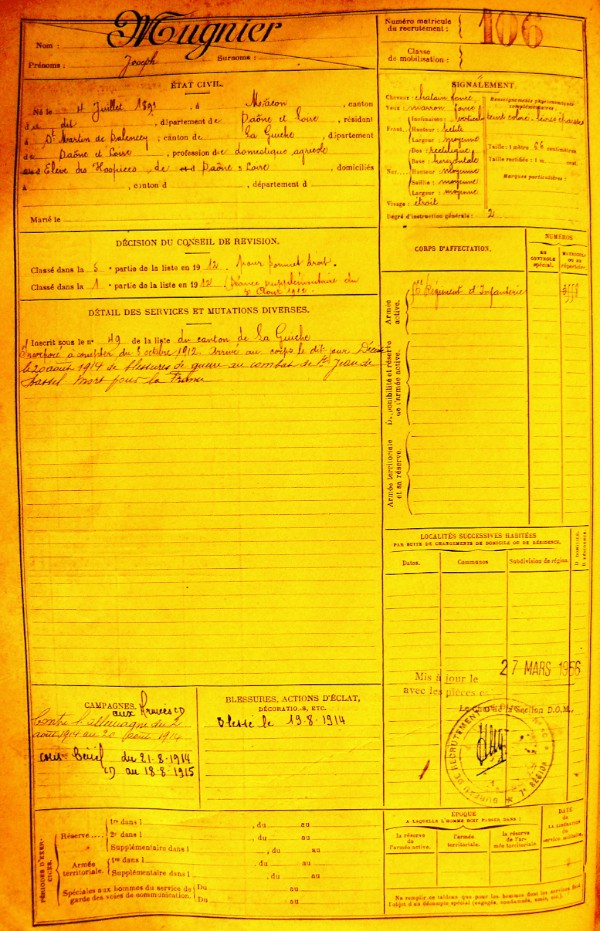 Nom :
Mugnier
Prénoms : Joseph Surnoms :
Numéro matricule
du recrutement :
106
Classe
de mobilisation :
ÉTAT CIVIL.
Né le 4 Juillet 1891, à Macon, canton
du dit, département de Saône et Loire, résidant
à St Martin de Salencey, canton de La Guiche, département
de Saône et Loire, profession de domestique agricole
Elève des Hospices de Saône & Loire, domiciliés
à , canton d , département d
Marié le
SIGNALEMENT.
Cheveux : chatain foncé
Yeux : marron foncé
Renseignements physionomiques
complémentaires :
Front. Inclinaison :
Hauteur : petite
Largeur : moyenne
Nez. Dos : rectiligne
Base : horizontale
Hauteur : moyenne
Saillie : moyenne
Largeur : moyenne
Visage : étroit
Taille : 1 mètre 56 centimètres
Taille rectifiée : 1 m. cent.
Marques particulières :
Degré d'instruction générale : 2
DÉCISION DU CONSEIL DE REVISION.
Classé dans la 5 partie de la liste en 1912
Classé dans la 1 partie de la liste en 1912 (séance supplémentaire du
Aout 1912
CORPS D'AFFECTATION.
NUMÉROS
AU CONTROLE spécial.
MATRICULE OU AU répertoire.
Armée
active.
Régiment d'Infanterie
Disponibilité et réserve
de l'armée active.
Armée territoriale
et sa réserve.
DÉTAIL DES SERVICES ET MUTATIONS DIVERSES.
Inscrit sous le n° 49 de la liste du canton de La Guiche
Incorporé à compter du 8 octobre 1912. Arrivé au corps le dit jour. Décédé
le 20 août 1914 de blessures de guerre au combat de St Jean de
Bassel Mort pour la France
LOCALITÉS SUCCESSIVES HABITÉES
PAR SUITE DE CHANGEMENTS DE DOMICILE OU DE RÉSIDENCE.
Dates.
Communes
Subdivision de région.
D. DOMICILE.
R. RÉSIDENCE.
27 MARS 1956
Mis à jour le
avec les pièces
Le Chef de la Section D.O.M.
CAMPAGNES.
aux Armées CD
Contre l'allemagne du 2
août 1914 au 20 août 1914
du 21-8-1914
CD au 18-8-1915
BLESSURES, ACTIONS D'ÉCLAT,
DÉCORATIONS, ETC.
Blessé le 19-8-1914
PÉRIODES D'EXERCICES.
Réserve
1re dans l , du au
2e dans l , du au
Supplémentaire dans l , du au
Armée
territoriale.
1re dans l , du au
Supplémentaire dans l , du au
Spéciales aux hommes du service de
garde des voies de communication.
Du au
Du au
ÉPOQUE
A LAQUELLE L'HOMME DOIT PASSER DANS :
la réserve
de l'armée active.
l'armée
territoriale.
la réserve
de l'armée
territoriale.
DATE
de
LA LIBÉRATION
du
service militaire.
Ne remplir ce tableau que pour les hommes dont les services font
l'objet d'un décompte spécial (engagés, condamnés, omis, etc.).